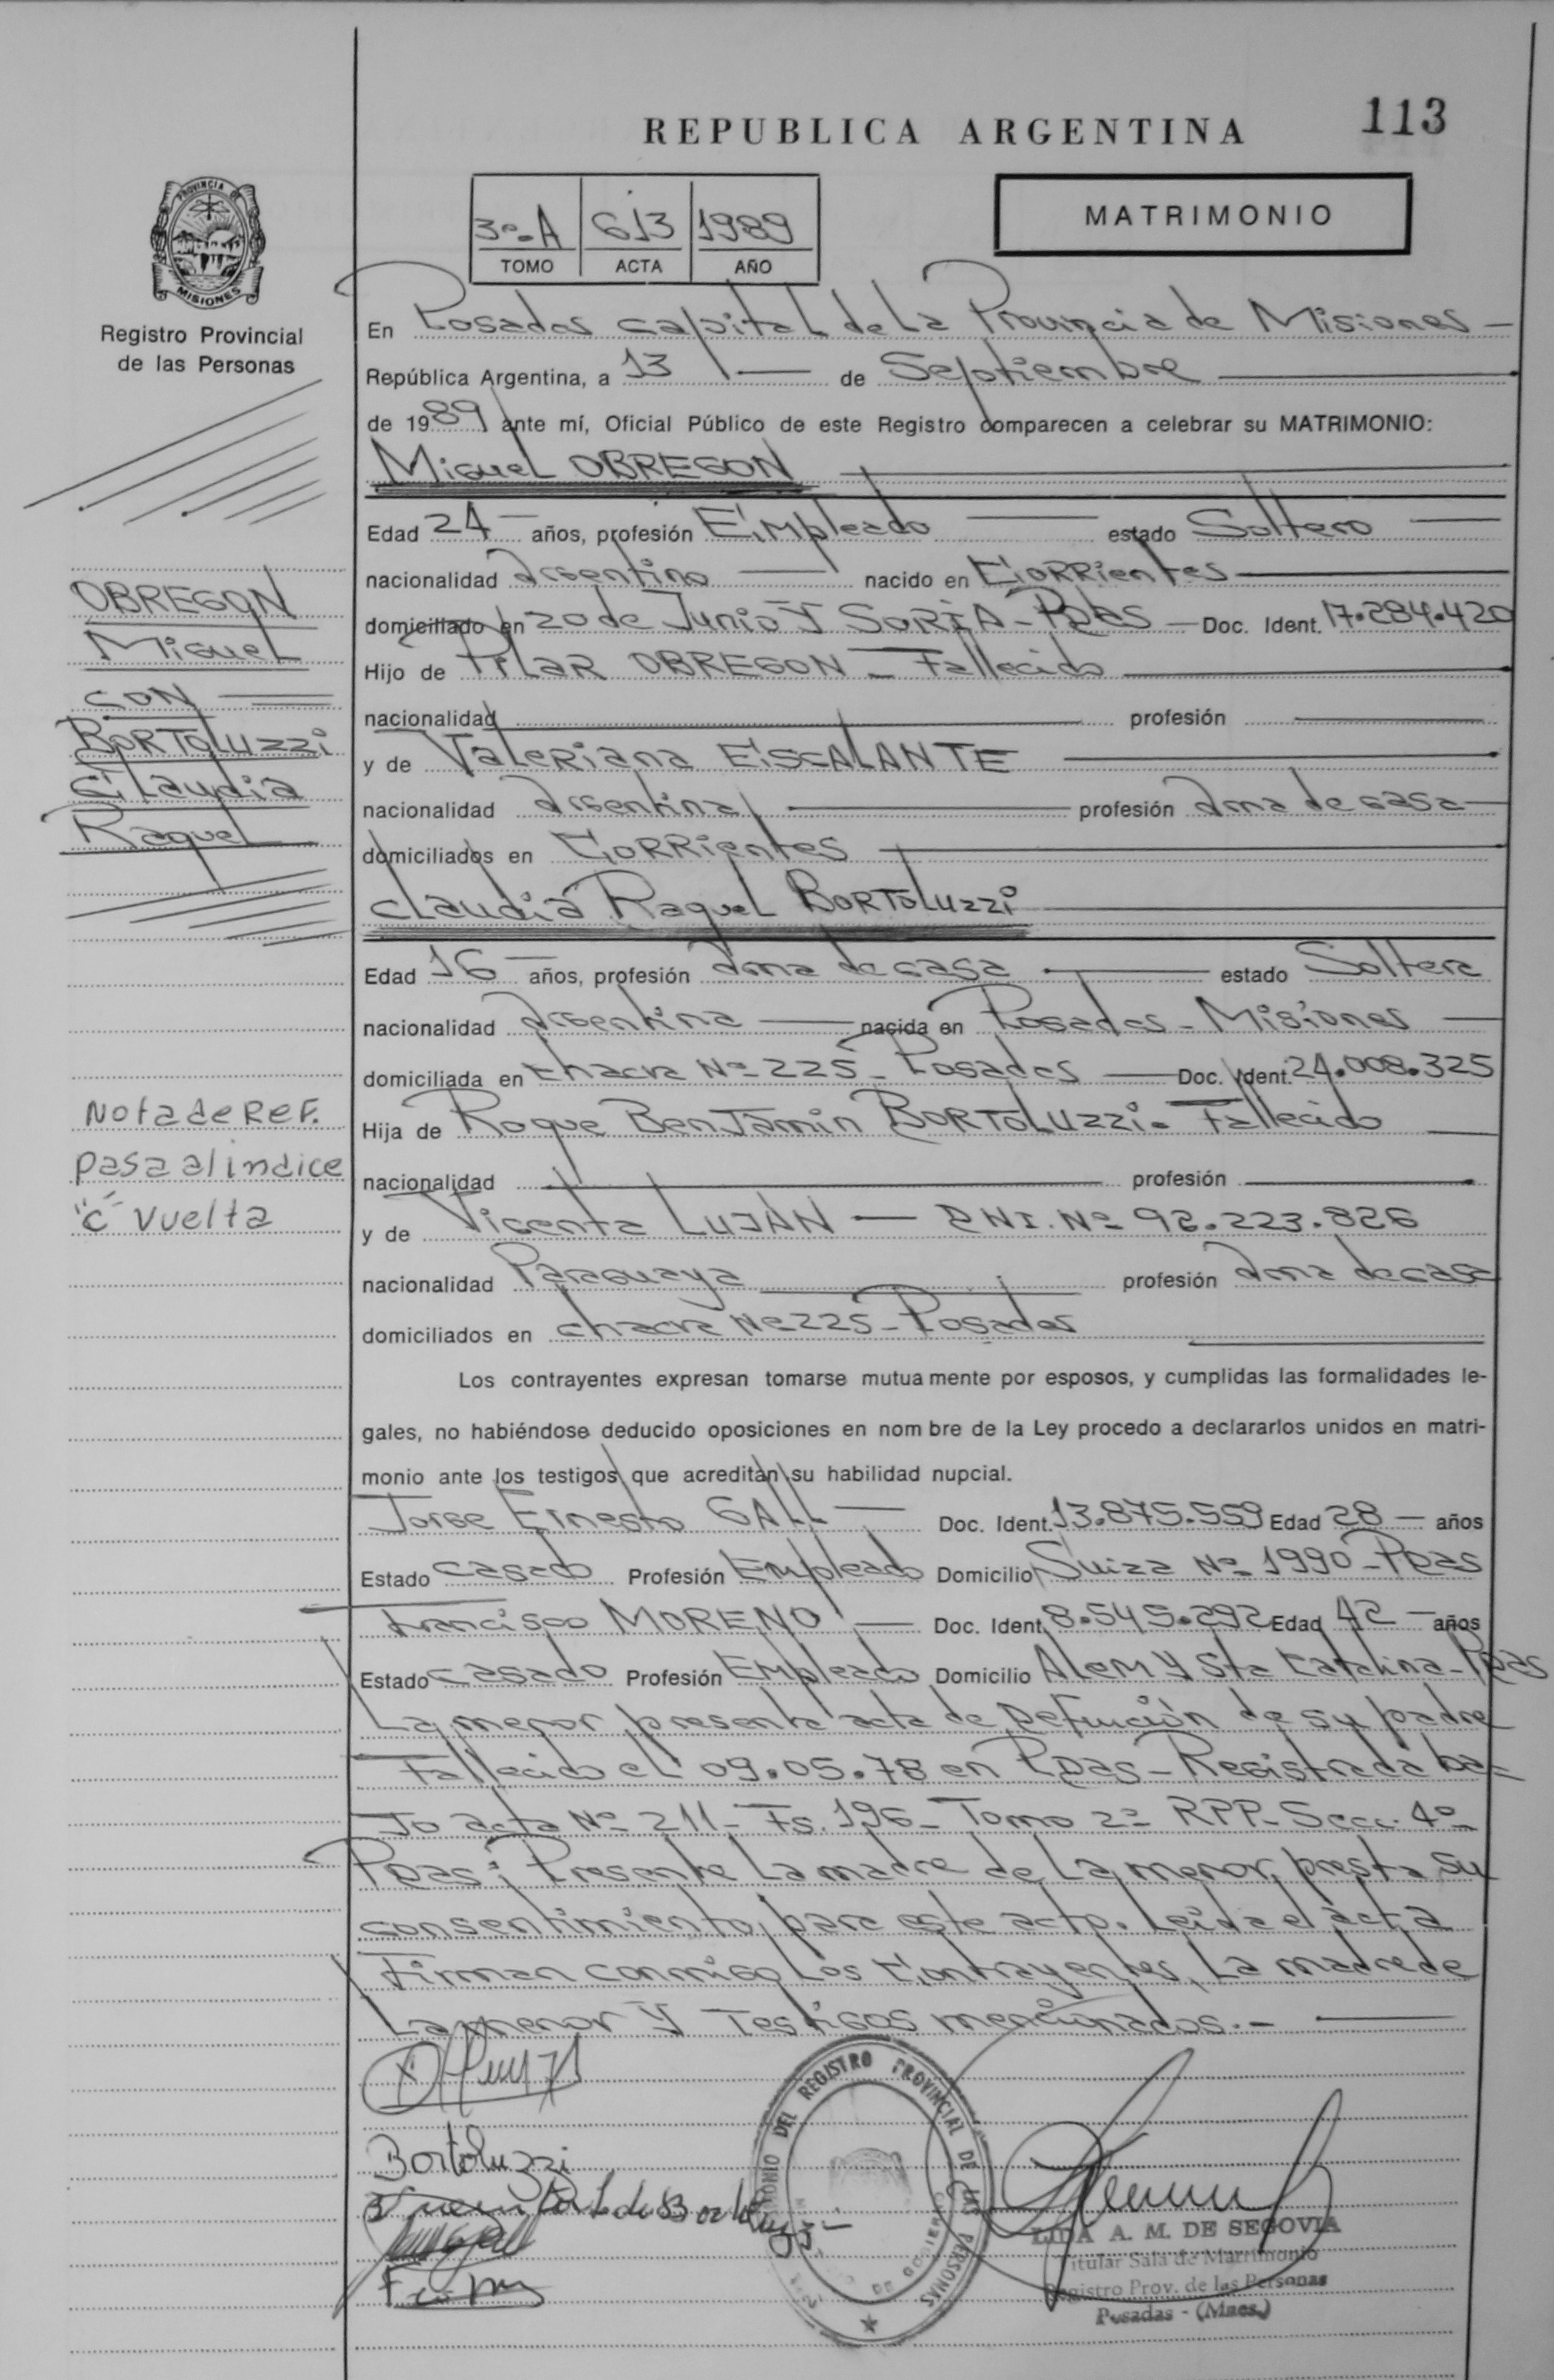 113
REPUBLICA ARGENTINA
MATRIMONIO
3º-A 613 1989
TOMO ACTA AÑO
PROVINCIA DE
MISIONES
Registro Provincial
de las Personas
OBREGON
Miguel
CON
BORTOLUZZI
Claudia
Raquel
Nota de Ref.
pasa al indice
"C" vuelta
En Posadas capital de la Provincia de Misiones —
República Argentina, a 13 — de Septiembre
de 1989 ante mí, Oficial Público de este Registro comparecen a celebrar su MATRIMONIO:
Miguel OBREGON
Edad 24 — años, profesión Empleado — estado Soltero —
nacionalidad argentino — nacido en Corrientes
domiciliado en 20 de Junio Y SORIA - Pdas — Doc. Ident. 17.284.420
Hijo de PILAR OBREGON - Fallecido
nacionalidad — profesión —
y de Valeriana ESCALANTE
nacionalidad argentina — profesión ama de casa —
domiciliados en Corrientes
Claudia Raquel BORTOLUZZI
Edad 16 — años, profesión ama de casa — estado Soltera
nacionalidad argentina — nacida en Posadas - Misiones —
domiciliada en chacra Nº 225 - Posadas — Doc. Ident. 24.008.325
Hija de Roque Benjamin BORTOLUZZI - Fallecido —
nacionalidad — profesión —
y de Vicenta LUJAN — DNI. Nº 92.223.826
nacionalidad Paraguaya profesión ama de casa
domiciliados en chacra Nº 225 - Posadas
Los contrayentes expresan tomarse mutua mente por esposos, y cumplidas las formalidades le-
gales, no habiéndose deducido oposiciones en nom bre de la Ley procedo a declararlos unidos en matri-
monio ante los testigos que acreditan su habilidad nupcial.
Jorge Ernesto GALL — Doc. Ident. 13.875.559 Edad 28 — años
Estado casado Profesión Empleado Domicilio Suiza Nº 1990 - Pdas
Francisco MORENO — Doc. Ident. 8.545.292 Edad 42 — años
Estado casado Profesión Empleado Domicilio ALEM y Sta Catalina - Pdas
La menor presenta acta de Defunción de su padre
Fallecido el 09.05.78 en Pdas - Registrada ba=
Jo acta Nº 211 - Fs. 196 - Tomo 2º RPP - Secc. 4º
Pdas; Presente la madre de la menor, presta su
consentimiento para este acto. Leida el acta
Firman conmigo los Contrayentes, la madre de
La menor Y Testigos mencionados.-
Bortoluzzi
DEL REGISTRO PROVINCIAL DE LAS PERSONAS
LIDA A. M. DE SEGOVIA
Titular Sala de Matrimonio
Registro Prov. de las Personas
Posadas - (Mnes.)